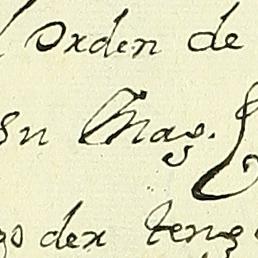 orden de
su Mag.
go dex teng